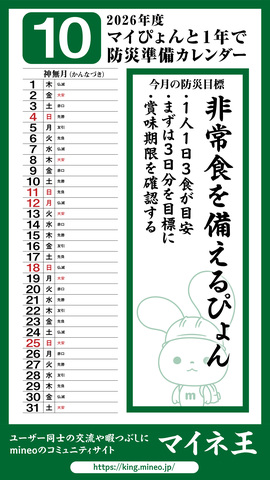 10
2026年度
マイぴょんと1年で
防災準備カレンダー
神無月(かんなづき)
1 木 仏滅
2 金 大安
3 土 赤口
4 日 先勝
5 月 友引
6 火 先負
7 水 仏滅
8 木 大安
9 金 赤口
10 土 先勝
11 日 先負
12 月 仏滅
13 火 大安
14 水 赤口
15 木 先勝
16 金 友引
17 土 先負
18 日 仏滅
19 月 大安
20 火 赤口
21 水 先勝
22 木 友引
23 金 先負
24 土 仏滅
25 日 大安
26 月 赤口
27 火 先勝
28 水 友引
29 木 先負
30 金 仏滅
31 土 大安
今月の防災目標
非常食を備えるぴょん
・1人1日3食が目安
・まずは3日分を目標に
・賞味期限を確認する
ユーザー同士の交流や暇つぶしに
mineoのコミュニティサイト
マイネ王
https://king.mineo.jp/